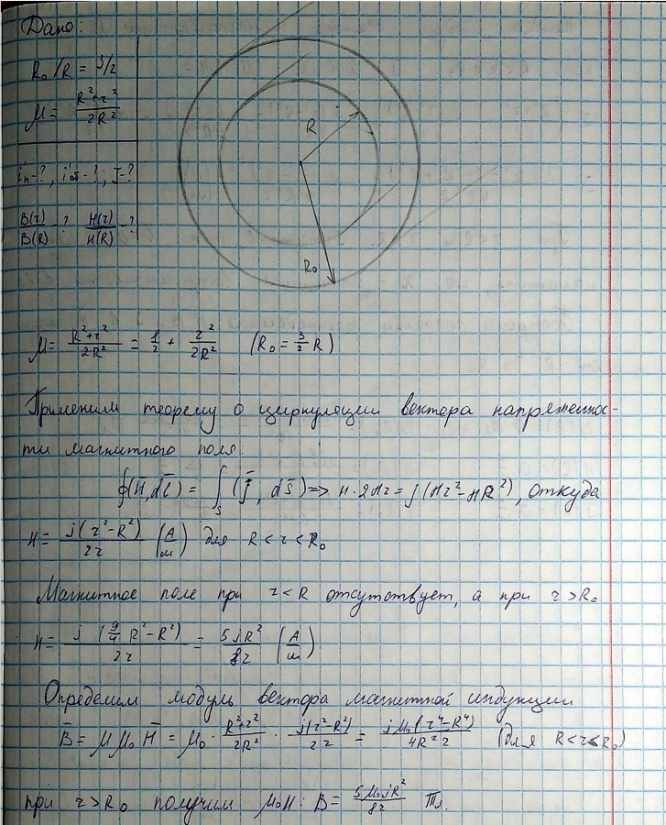 Дано:
R₀/R = 3/2
μ = (R²+r²)/(2R²)
iₙ-?, i'об-?, J-?
B(r)/B(R) ? H(r)/H(R) -?
R
R₀
μ = (R²+r²)/(2R²) = 1/2 + r²/(2R²) (R₀ = 3/2 R)
Применим теорему о циркуляции вектора напряженнос-
ти магнитного поля.
∮(H, dl̄) = ∫_S (j̄, ds̄) => H·2πr = j(πr²-πR²), откуда
H = j(r²-R²)/(2r) (А/м) для R<r<R₀
Магнитное поле при r<R отсутствует, а при r>R₀
H = j(9/4 R²-R²)/(2r) = 5jR²/(8r) (А/м)
Определим модуль вектора магнитной индукции
B̄ = μμ₀H̄ = μ₀ · (R²+r²)/(2R²) · j(r²-R²)/(2r) = jμ₀(r⁴-R⁴)/(4R²r) (для R<r<R₀)
при r>R₀ получим μ₀H: B = 5μ₀jR²/(8r) Тл.